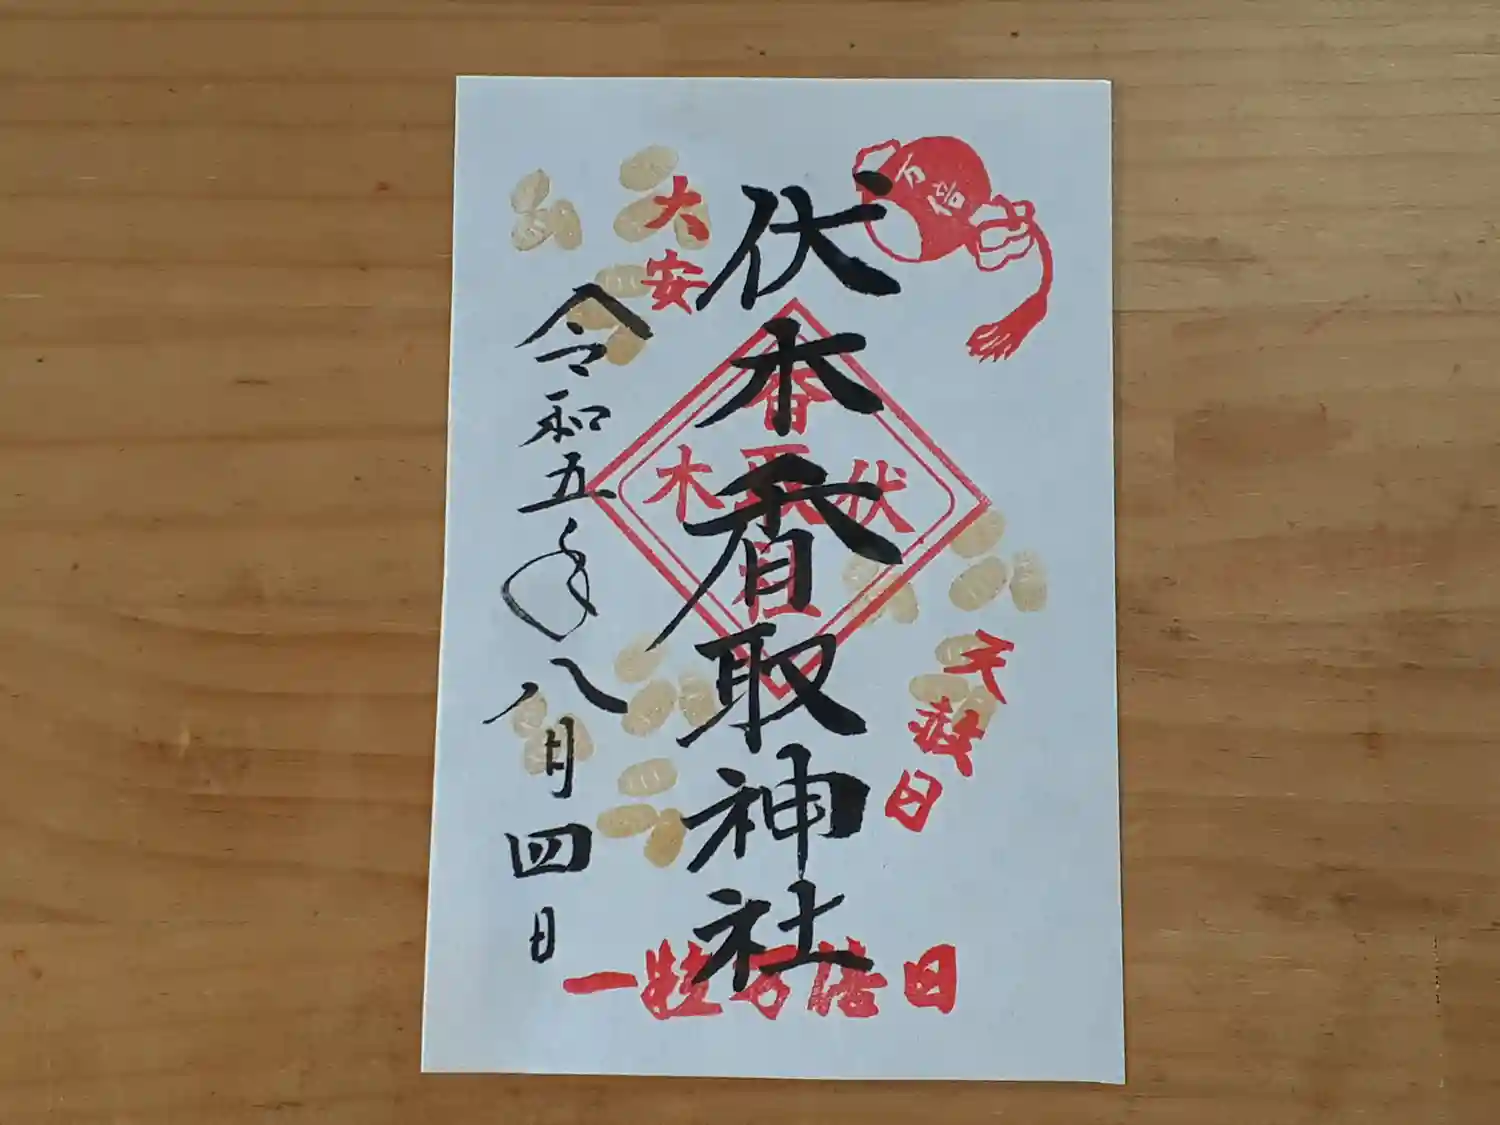 万倍
伏木香取神社
香取
伏木
社
天赦日
大安
令和五年八月四日
一粒万倍日